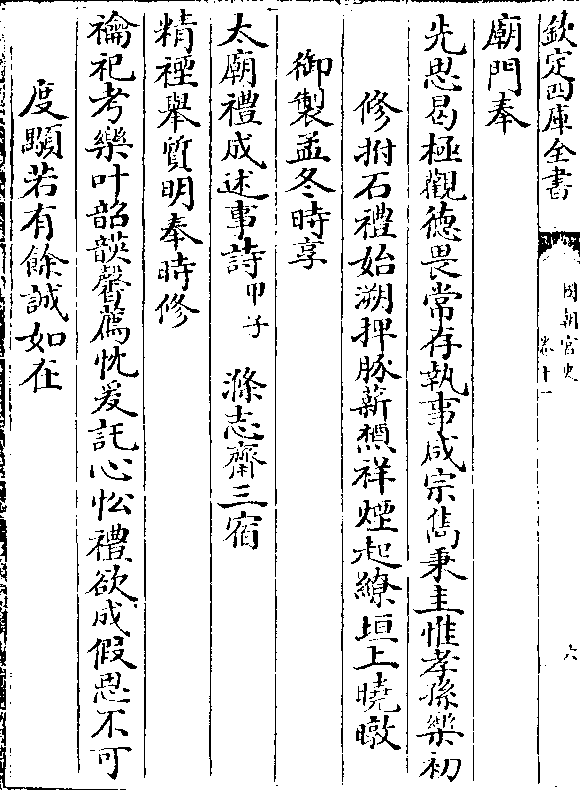 欽定四庫全書
國朝宮史
卷十一
六
廟門奉
先思曷極觀德畏常存執事咸宗雋秉圭惟孝孫樂初
修拊石禮始溯捭豚薪槱祥煙起繚垣上曉暾
御製孟冬時享
太廟禮成述事詩甲子 滌志齋三宿
精禋舉質明奉時修
禴祀考樂叶韶韺馨薦忱爰託心忪禮欲成假思不可
度顒若有餘誠如在